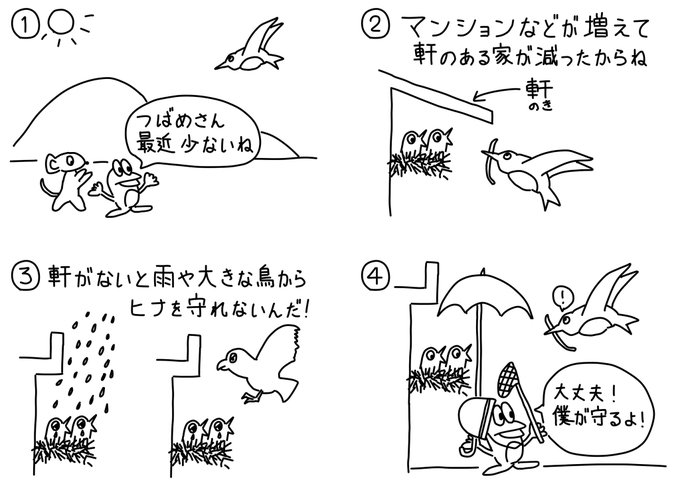 ①
つばめさん
最近少ないね
②マンションなどが増えて
軒のある家が減ったからね
軒
のき
③軒がないと雨や大きな鳥から
ヒナを守れないんだ!
④
!
大丈夫!
僕が守るよ!